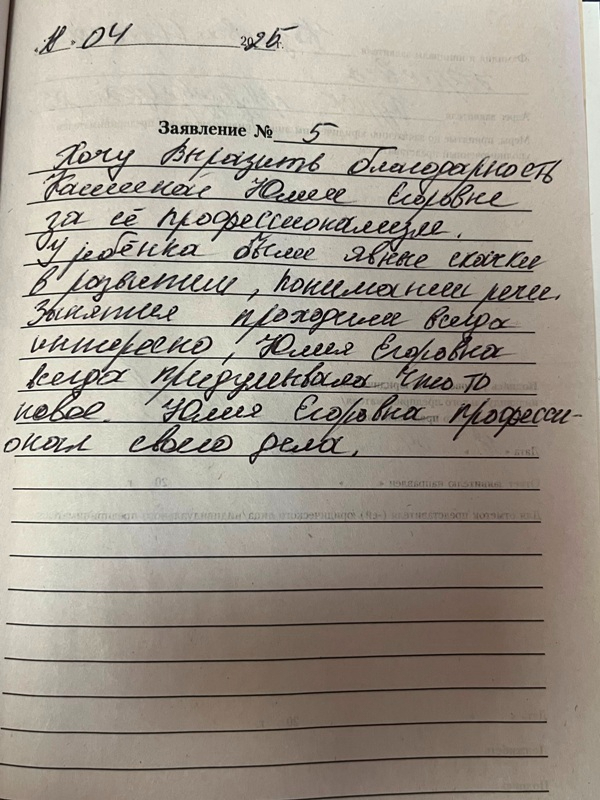 .04 2025г.
Заявление № 5
Хочу Выразить благодарность
Юлии Егоровне
за её профессионализм.
У ребёнка были явные скачки
в развитии, понимании речи.
Занятия проходили всегда
интересно, Юлия Егоровна
всегда придумывала что то
новое. Юлия Егоровна професси-
онал своего дела.